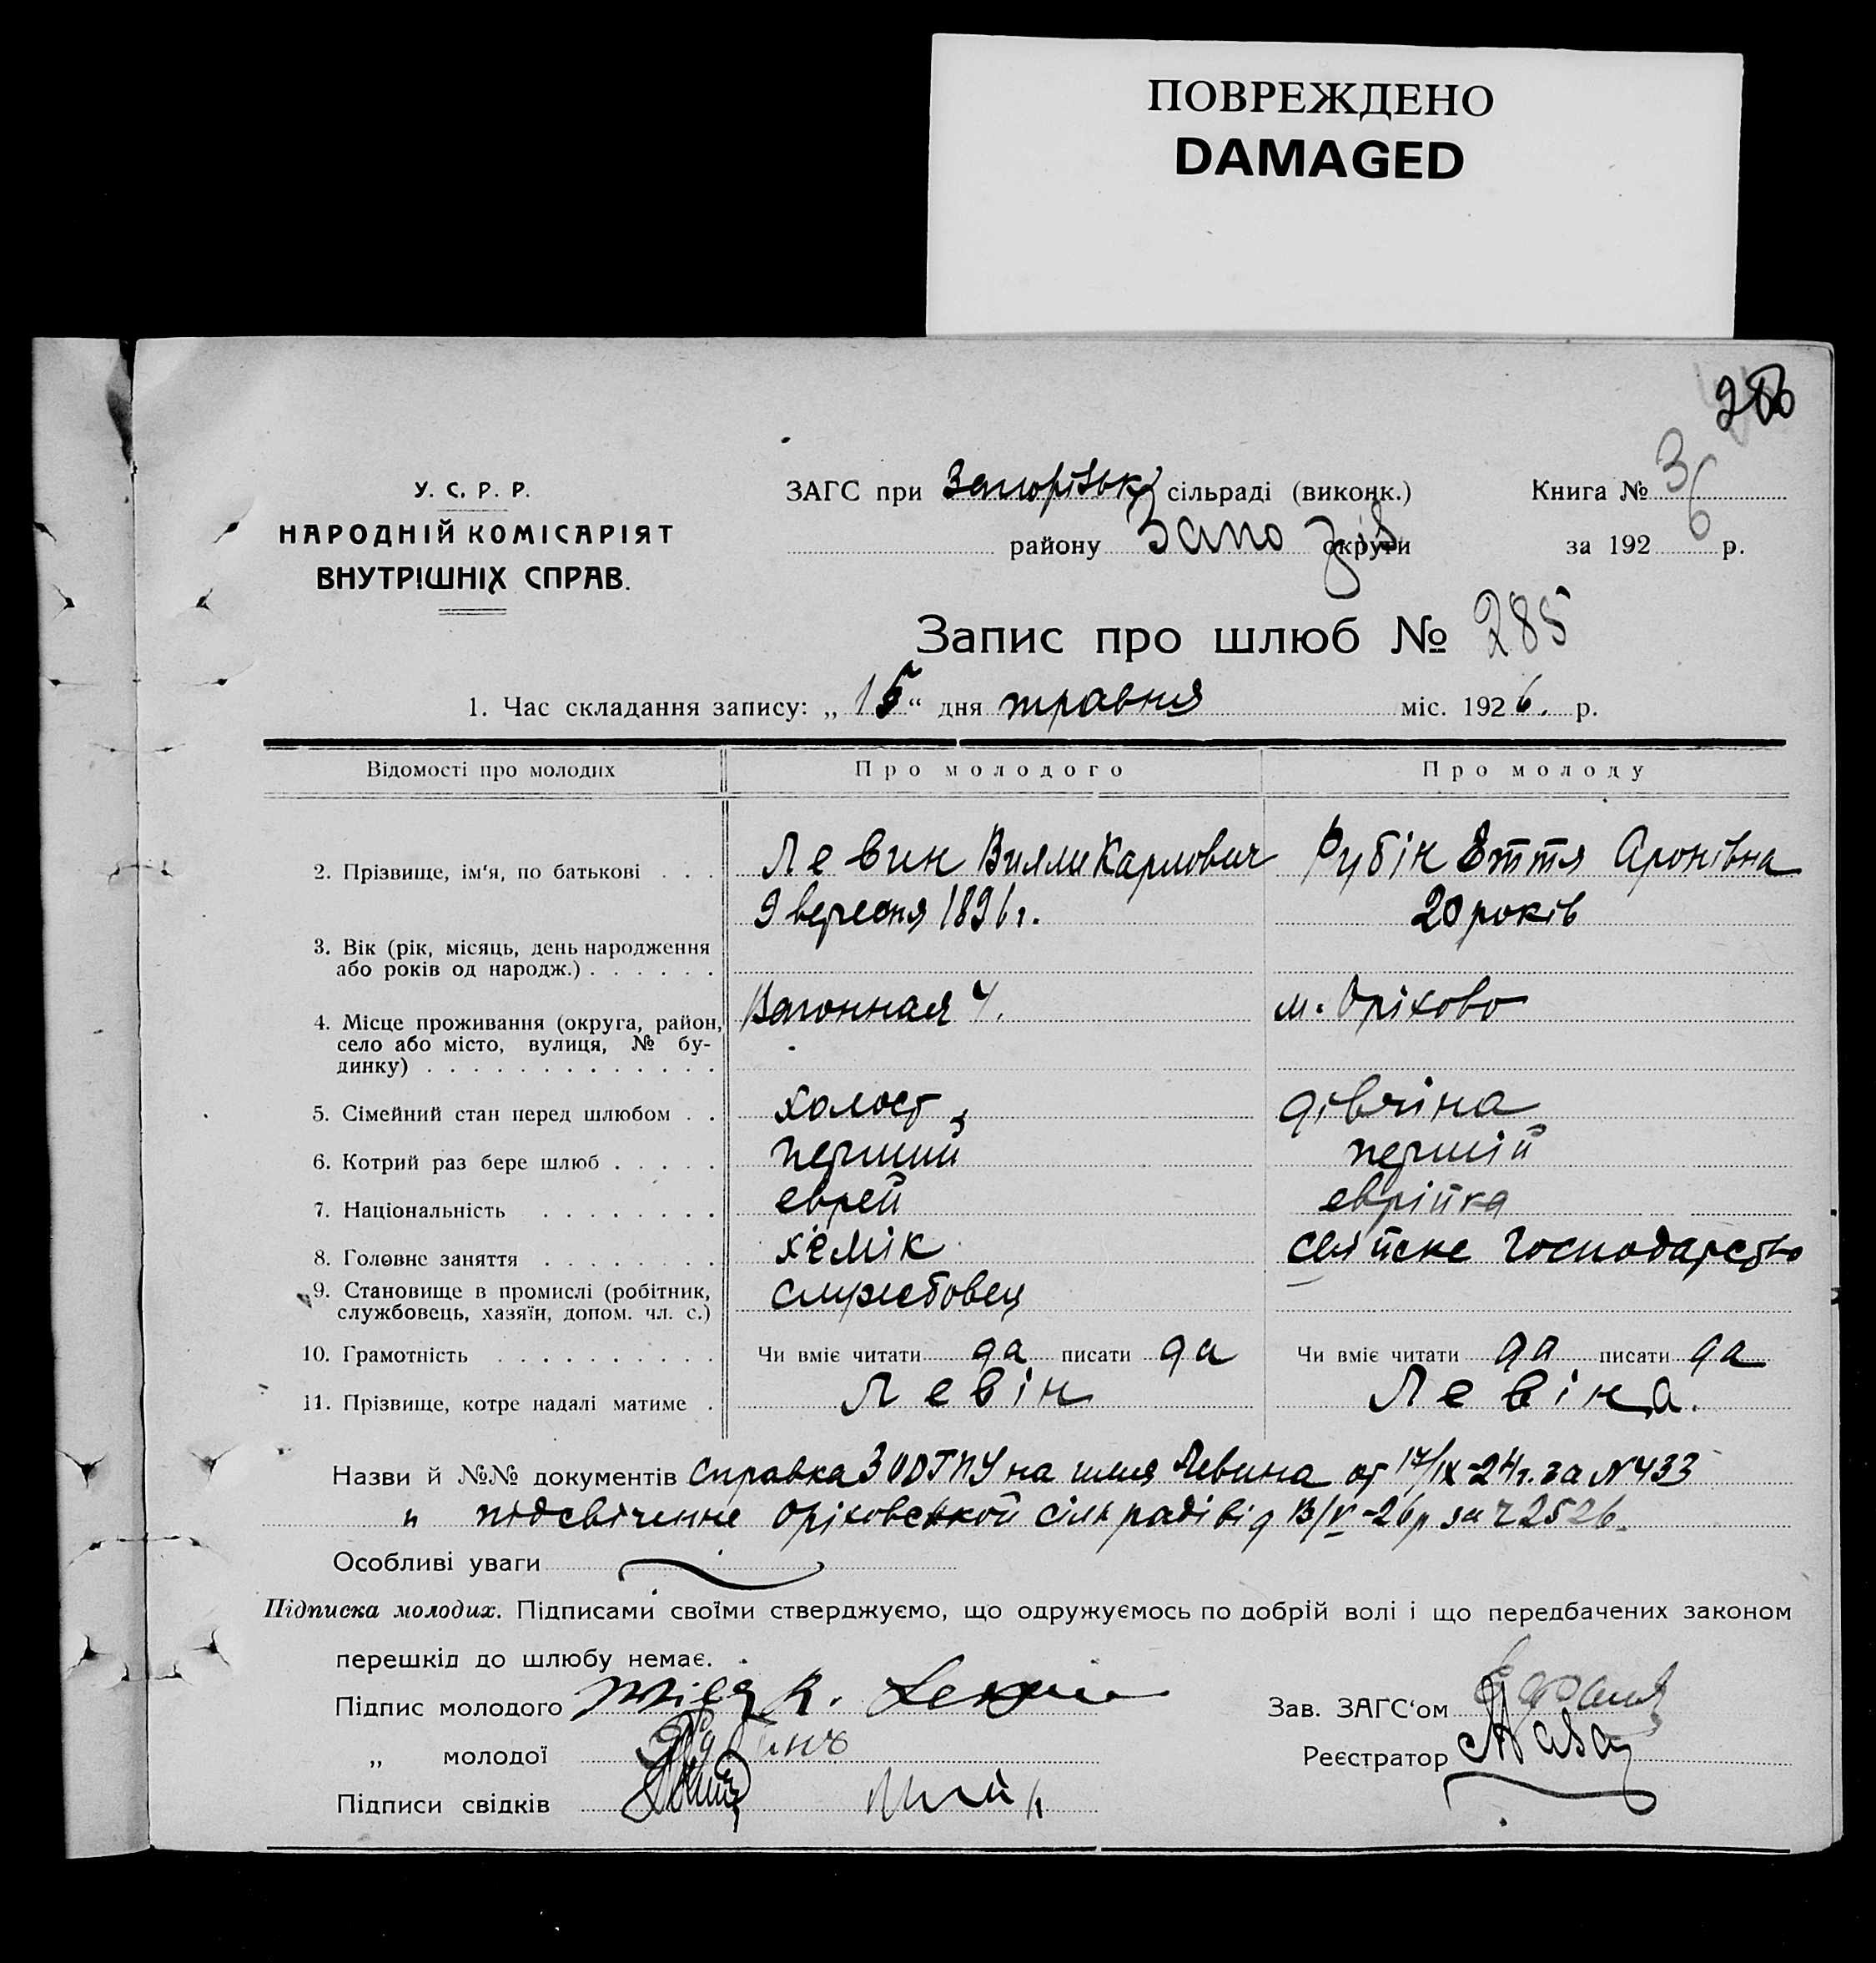 ПОВРЕЖДЕНО
DAMAGED
У. С. Р. Р.
НАРОДНІЙ КОМІСАРІЯТ
ВНУТРІШНІХ СПРАВ.
ЗАГС при сільраді (виконк.)
району Запоріз округи
Книга № 3
за 192 6 р.
Запис про шлюб № 285
1. Час складання запису: „ 15 “ дня травня міс. 1926. р.
Відомості про молодих Про молодого Про молоду
2. Прізвище, ім‘я, по батькові . . . Левин Вилли Карлович Рубін Еття Аронівна
9 вересня 1896 г. 20 років
3. Вік (рік, місяць, день народження
або років од народж.) . . . . . .
4. Місце проживання (округа, район, Вагонная 4. м. Оріхово
село або місто, вулиця, № бу-
динку) . . . . . . . . . . . . .
5. Сімейний стан перед шлюбом . . холост дівчина
6. Котрий раз бере шлюб . . . . . перший першій
7. Національність . . . . . . . . еврей еврійка
8. Головне заняття . . . . . . . . хемік Господарство
9. Становище в промислі (робітник, служебовец
службовець, хазяїн, допом. чл. с.)
10. Грамотність . . . . . . . . . . Чи вміє читати да писати да Чи вміє читати да писати да
11. Прізвище, котре надалі матиме . Левін Левіна.
Назви й №№ документів Справка ЗООГПУ на имя Левина от 17/IX-24 г. за N 433
" підсвіченне Оріховської сільради від 13/V-26 р за ч 2526.
Особливі уваги
Підписка молодих. Підписами своїми стверджуємо, що одружуємось по добрій волі і що передбачених законом
перешкід до шлюбу немає.
Підпис молодого
„ молодої
Підписи свідків
Зав. ЗАГС‘ом
Реєстратор